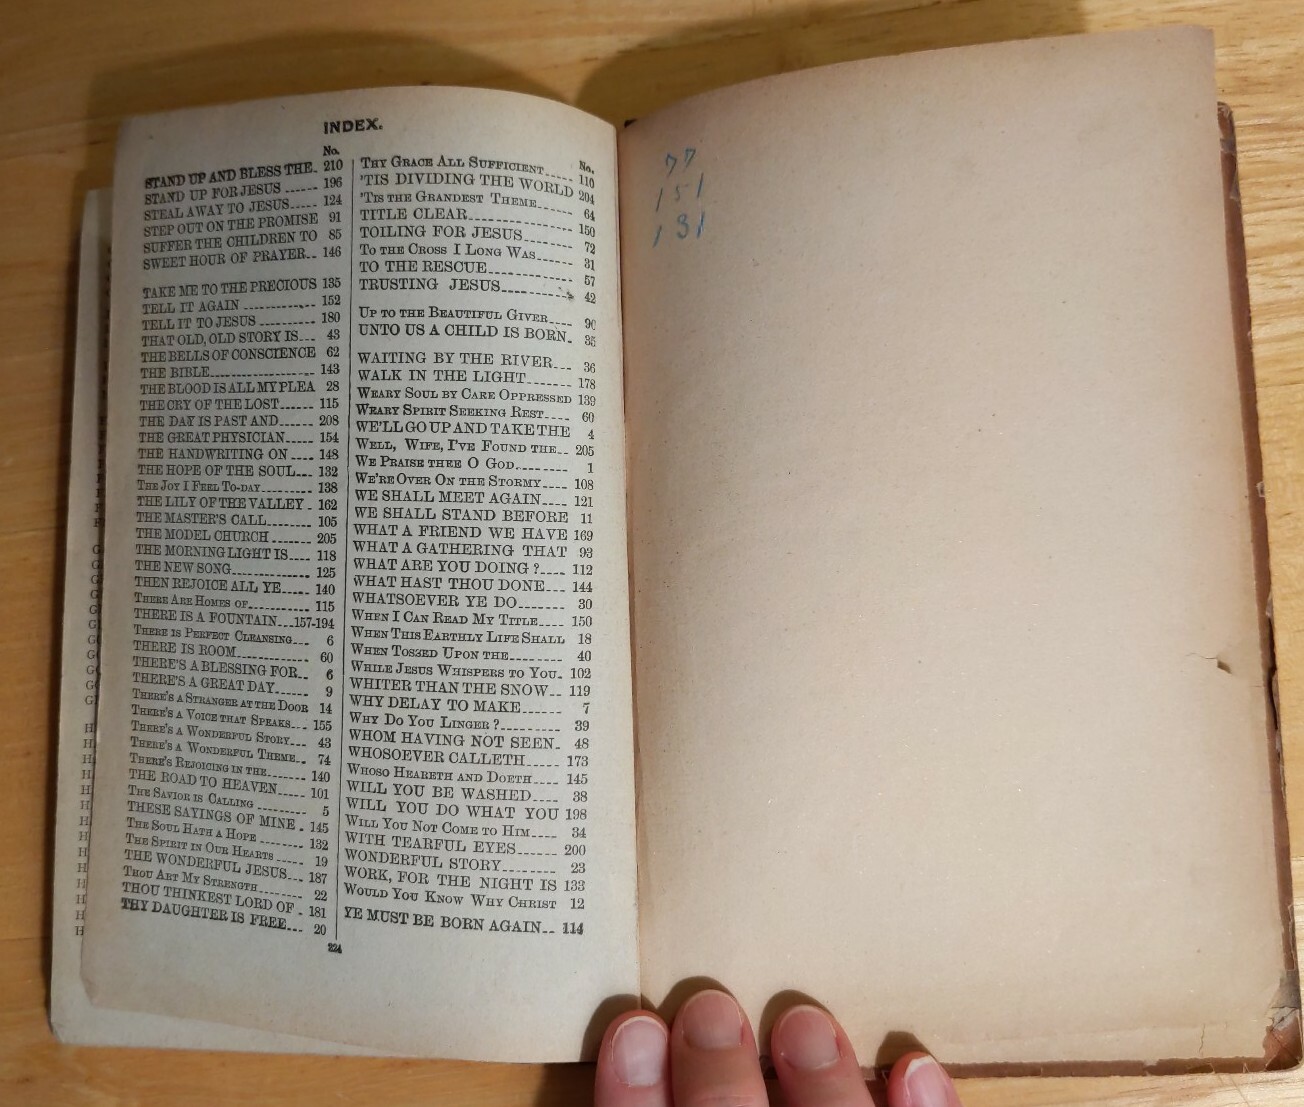 INDEX.
No.
STAND UP AND BLESS THE. 210
STAND UP FOR JESUS ...... 196
STEAL AWAY TO JESUS..... 124
STEP OUT ON THE PROMISE 91
SUFFER THE CHILDREN TO 85
SWEET HOUR OF PRAYER.. 146
TAKE ME TO THE PRECIOUS 135
TELL IT AGAIN ............. 152
TELL IT TO JESUS .......... 180
THAT OLD, OLD STORY IS... 43
THE BELLS OF CONSCIENCE 62
THE BIBLE................... 143
THE BLOOD IS ALL MY PLEA 28
THE CRY OF THE LOST...... 115
THE DAY IS PAST AND...... 208
THE GREAT PHYSICIAN..... 154
THE HANDWRITING ON .... 148
THE HOPE OF THE SOUL... 132
THE JOY I FEEL TO-DAY......... 138
THE LILY OF THE VALLEY . 162
THE MASTER'S CALL........ 105
THE MODEL CHURCH ....... 205
THE MORNING LIGHT IS.... 118
THE NEW SONG.............. 125
THEN REJOICE ALL YE..... 140
THERE ARE HOMES OF........... 115
THERE IS A FOUNTAIN...157-194
THERE IS PERFECT CLEANSING... 6
THERE IS ROOM............. 60
THERE'S A BLESSING FOR.. 6
THERE'S A GREAT DAY...... 9
THERE'S A STRANGER AT THE DOOR 14
THERE'S A VOICE THAT SPEAKS... 155
THERE'S A WONDERFUL STORY... 43
THERE'S A WONDERFUL THEME.. 74
THERE'S REJOICING IN THE....... 140
THE ROAD TO HEAVEN..... 101
THE SAVIOR IS CALLING ......... 5
THESE SAYINGS OF MINE . 145
THE SOUL HATH A HOPE ......... 132
THE SPIRIT IN OUR HEARTS ..... 19
THE WONDERFUL JESUS... 187
THOU ART MY STRENGTH........ 22
THOU THINKEST LORD OF . 181
THY DAUGHTER IS FREE... 20
No.
THY GRACE ALL SUFFICIENT..... 110
'TIS DIVIDING THE WORLD 204
'TIS THE GRANDEST THEME...... 64
TITLE CLEAR................ 150
TOILING FOR JESUS........ 72
TO THE CROSS I LONG WAS...... 31
TO THE RESCUE............. 57
TRUSTING JESUS........... 42
UP TO THE BEAUTIFUL GIVER....
UNTO US A CHILD IS BORN. 35
WAITING BY THE RIVER... 36
WALK IN THE LIGHT....... 178
WEARY SOUL BY CARE OPPRESSED 139
WEARY SPIRIT SEEKING REST.... 60
WE'LL GO UP AND TAKE THE 4
WELL, WIFE, I'VE FOUND THE.. 205
WE PRAISE THEE O GOD......... 1
WE'RE OVER ON THE STORMY.... 108
WE SHALL MEET AGAIN.... 121
WE SHALL STAND BEFORE 11
WHAT A FRIEND WE HAVE 169
WHAT A GATHERING THAT 93
WHAT ARE YOU DOING ?.... 112
WHAT HAST THOU DONE... 144
WHATSOEVER YE DO....... 30
WHEN I CAN READ MY TITLE.... 150
WHEN THIS EARTHLY LIFE SHALL 18
WHEN TOSSED UPON THE........ 40
WHILE JESUS WHISPERS TO YOU. 102
WHITER THAN THE SNOW.. 119
WHY DELAY TO MAKE...... 7
WHY DO YOU LINGER ?........ 39
WHOM HAVING NOT SEEN. 48
WHOSOEVER CALLETH..... 173
WHOSO HEARETH AND DOETH.... 145
WILL YOU BE WASHED.... 38
WILL YOU DO WHAT YOU 198
WILL YOU NOT COME TO HIM.... 34
WITH TEARFUL EYES...... 200
WONDERFUL STORY........ 23
WORK, FOR THE NIGHT IS 133
WOULD YOU KNOW WHY CHRIST 12
YE MUST BE BORN AGAIN.. 114
224
77
151
131